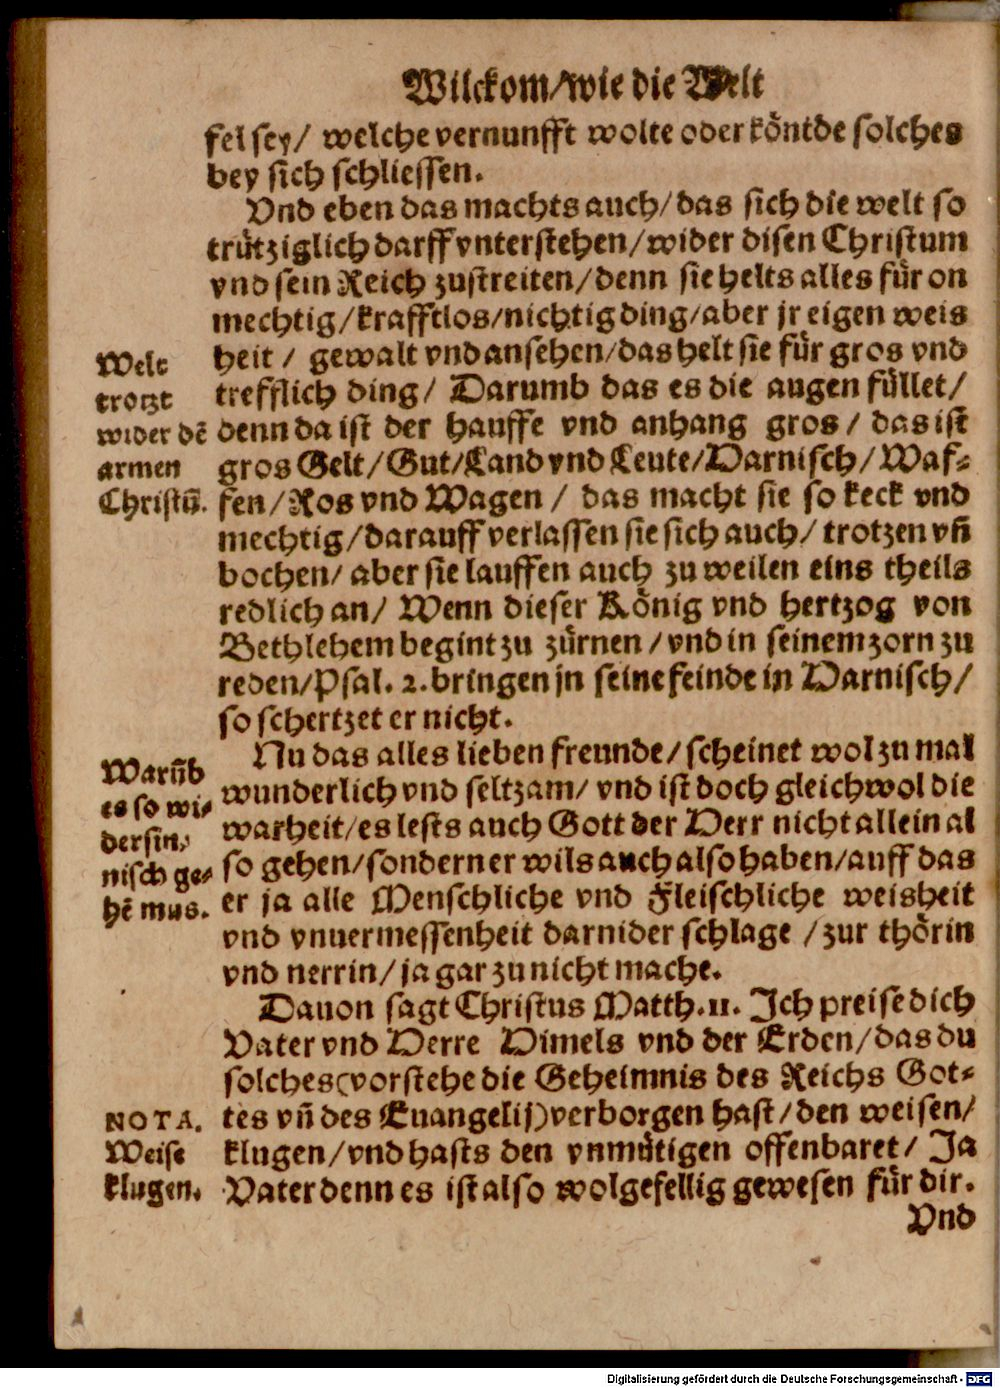 Wilckom/wie die Welt
fel sey/ welche vernunfft wolte oder köntde solches
bey sich schliessen.
Vnd eben das machts auch/das sich die welt so
trütziglich darff vnterstehen/wider disen Christum
vnd sein Reich zustreiten/denn sie helts alles für on
mechtig/krafftlos/nichtig ding/aber jr eigen weis
heit / gewalt vnd ansehen/das helt sie für gros vnd
trefflich ding/ Darumb das es die augen füllet/
denn da ist der hauffe vnd anhang gros / das ist
gros Gelt/Gut/Land vnd Leute/Harnisch/Waf-
fen/Ros vnd Wagen / das macht sie so keck vnd
mechtig/darauff verlassen sie sich auch/ trotzen vñ
bochen/ aber sie lauffen auch zu weilen eins theils
redlich an/ Wenn dieser König vnd hertzog von
Bethlehem begint zu zürnen /vnd in seinem zorn zu
reden/Psal. 2. bringen jn seine feinde in Harnisch/
so schertzet er nicht.
Welt
trotzt
wider dẽ
armen
Christũ.
Nu das alles lieben freunde/scheinet wol zu mal
wunderlich vnd seltzam/ vnd ist doch gleichwol die
warheit/es lests auch Gott der Herr nicht allein al
so gehen/sondern er wils auch also haben/auff das
er ja alle Menschliche vnd Fleischliche weisheit
vnd vnuermessenheit darnider schlage /zur thörin
vnd nerrin/ja gar zu nicht mache.
Warũb
es so wi-
dersin-
nisch ge-
hẽ mus.
Dauon sagt Christus Matth.11. Ich preise dich
Vater vnd Herre Himels vnd der Erden/das du
solches(vorstehe die Geheimnis des Reichs Got-
tes vñ des Euangelij)verborgen hast/den weisen/
klugen/vnd hasts den vnmütigen offenbaret/ Ja
Vater denn es ist also wolgefellig gewesen für dir.
NOTA.
Weise
klugen.
Vnd
Digitalisierung gefördert durch die Deutsche Forschungsgemeinschaft - DFG